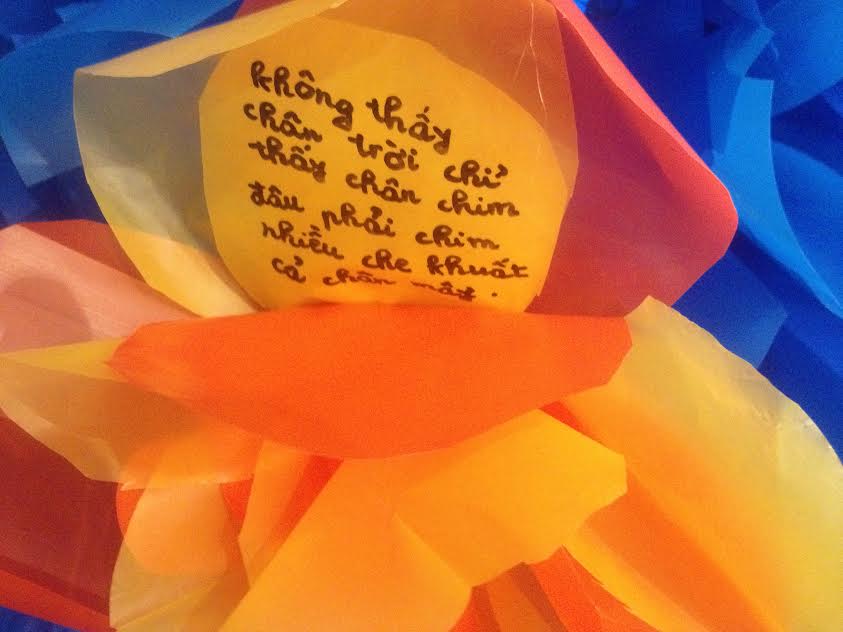 không thấy
chân trời chỉ
thấy chân chim
đâu phải chim
nhiều che khuất
cả chân mây.